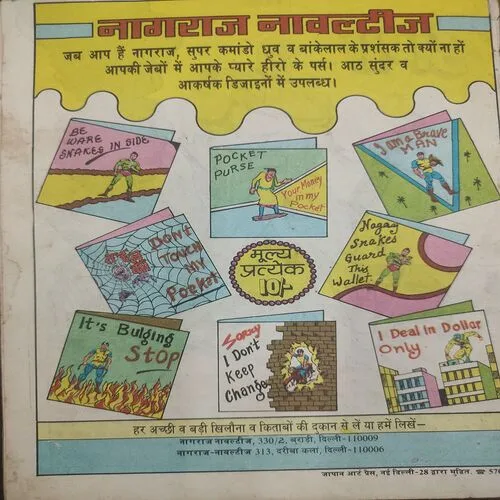 नागराज नावल्टीज
जब आप हैं नागराज, सुपर कमांडो ध्रुव व बांकेलाल के प्रशंसक तो क्यों ना हों
आपकी जेबों में आपके प्यारे हीरो के पर्स। आठ सुंदर व
आकर्षक डिजाइनों में उपलब्ध।
BE
WARE
SNAKES IN SIDE
POCKET
PURSE
Your Money
in my
Pocket
I am a Brave
MAN
DON'T
TOUCH
MY
Pocket
मूल्य
प्रत्येक
10/-
Nagraj
Snakes
Guard
This
Wallet
It's Bulging
STOP
Sorry
I Don't
Keep
Change
I Deal in Dollar
Only
हर अच्छी व बड़ी खिलौना व किताबों की दुकान से लें या हमें लिखें—
नागराज नावल्टीज, 330/2, बुराड़ी, दिल्ली-110009
नागराज-नावल्टीज 313, दरीबा कलां, दिल्ली-110006
जापान आर्ट प्रेस, नई दिल्ली-28 द्वारा मुद्रित. ☎